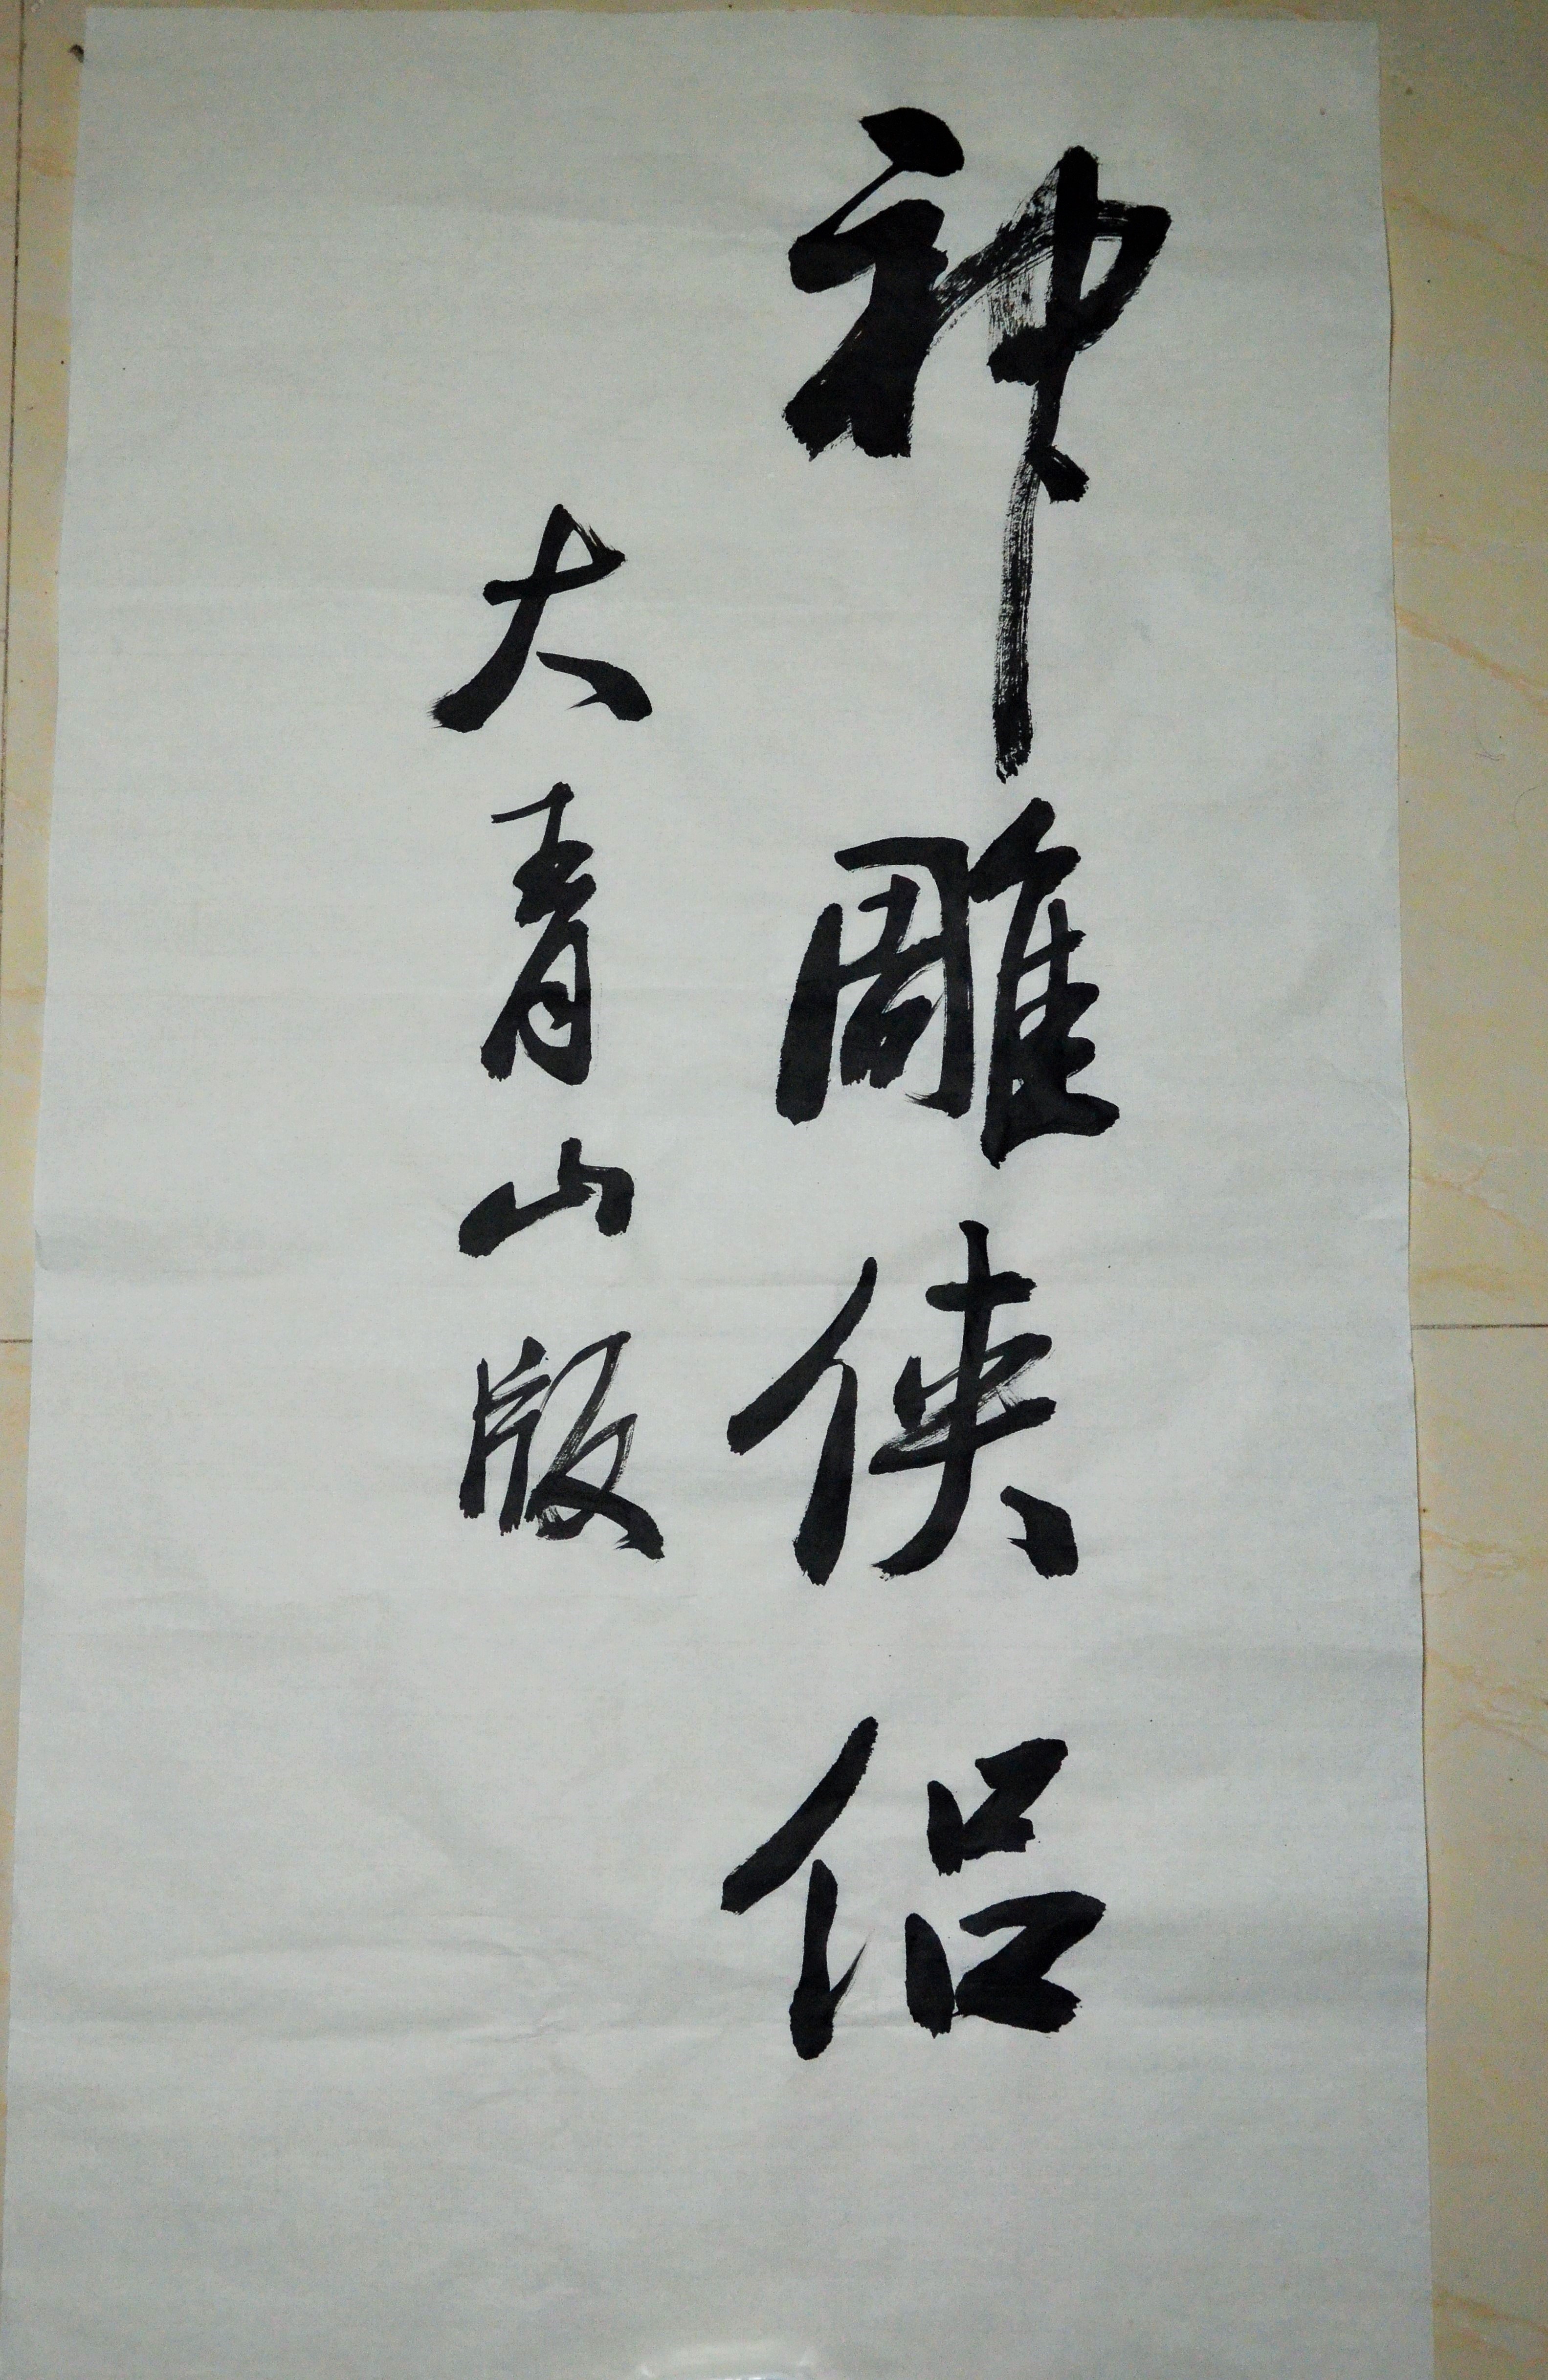 神雕侠侣
大青山版